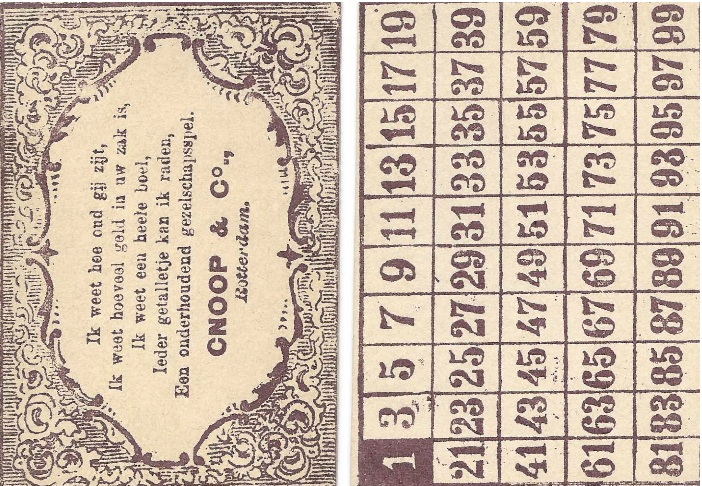 Ik weet hoe oud gij zijt,
Ik weet hoeveel geld in uw zak is,
Ik weet een heele boel,
Ieder getalletje kan ik raden,
Een onderhoudend gezelschapsspel.
CNOOP & Co.,
Rotterdam.
1 3 5 7 9 11 13 15 17 19
21 23 25 27 29 31 33 35 37 39
41 43 45 47 49 51 53 55 57 59
61 63 65 67 69 71 73 75 77 79
81 83 85 87 89 91 93 95 97 99